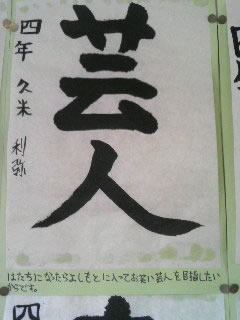 芸人
四年 久米 利弥
はたちになったらよしもとに入ってお笑い芸人を目指したい
からです。
四